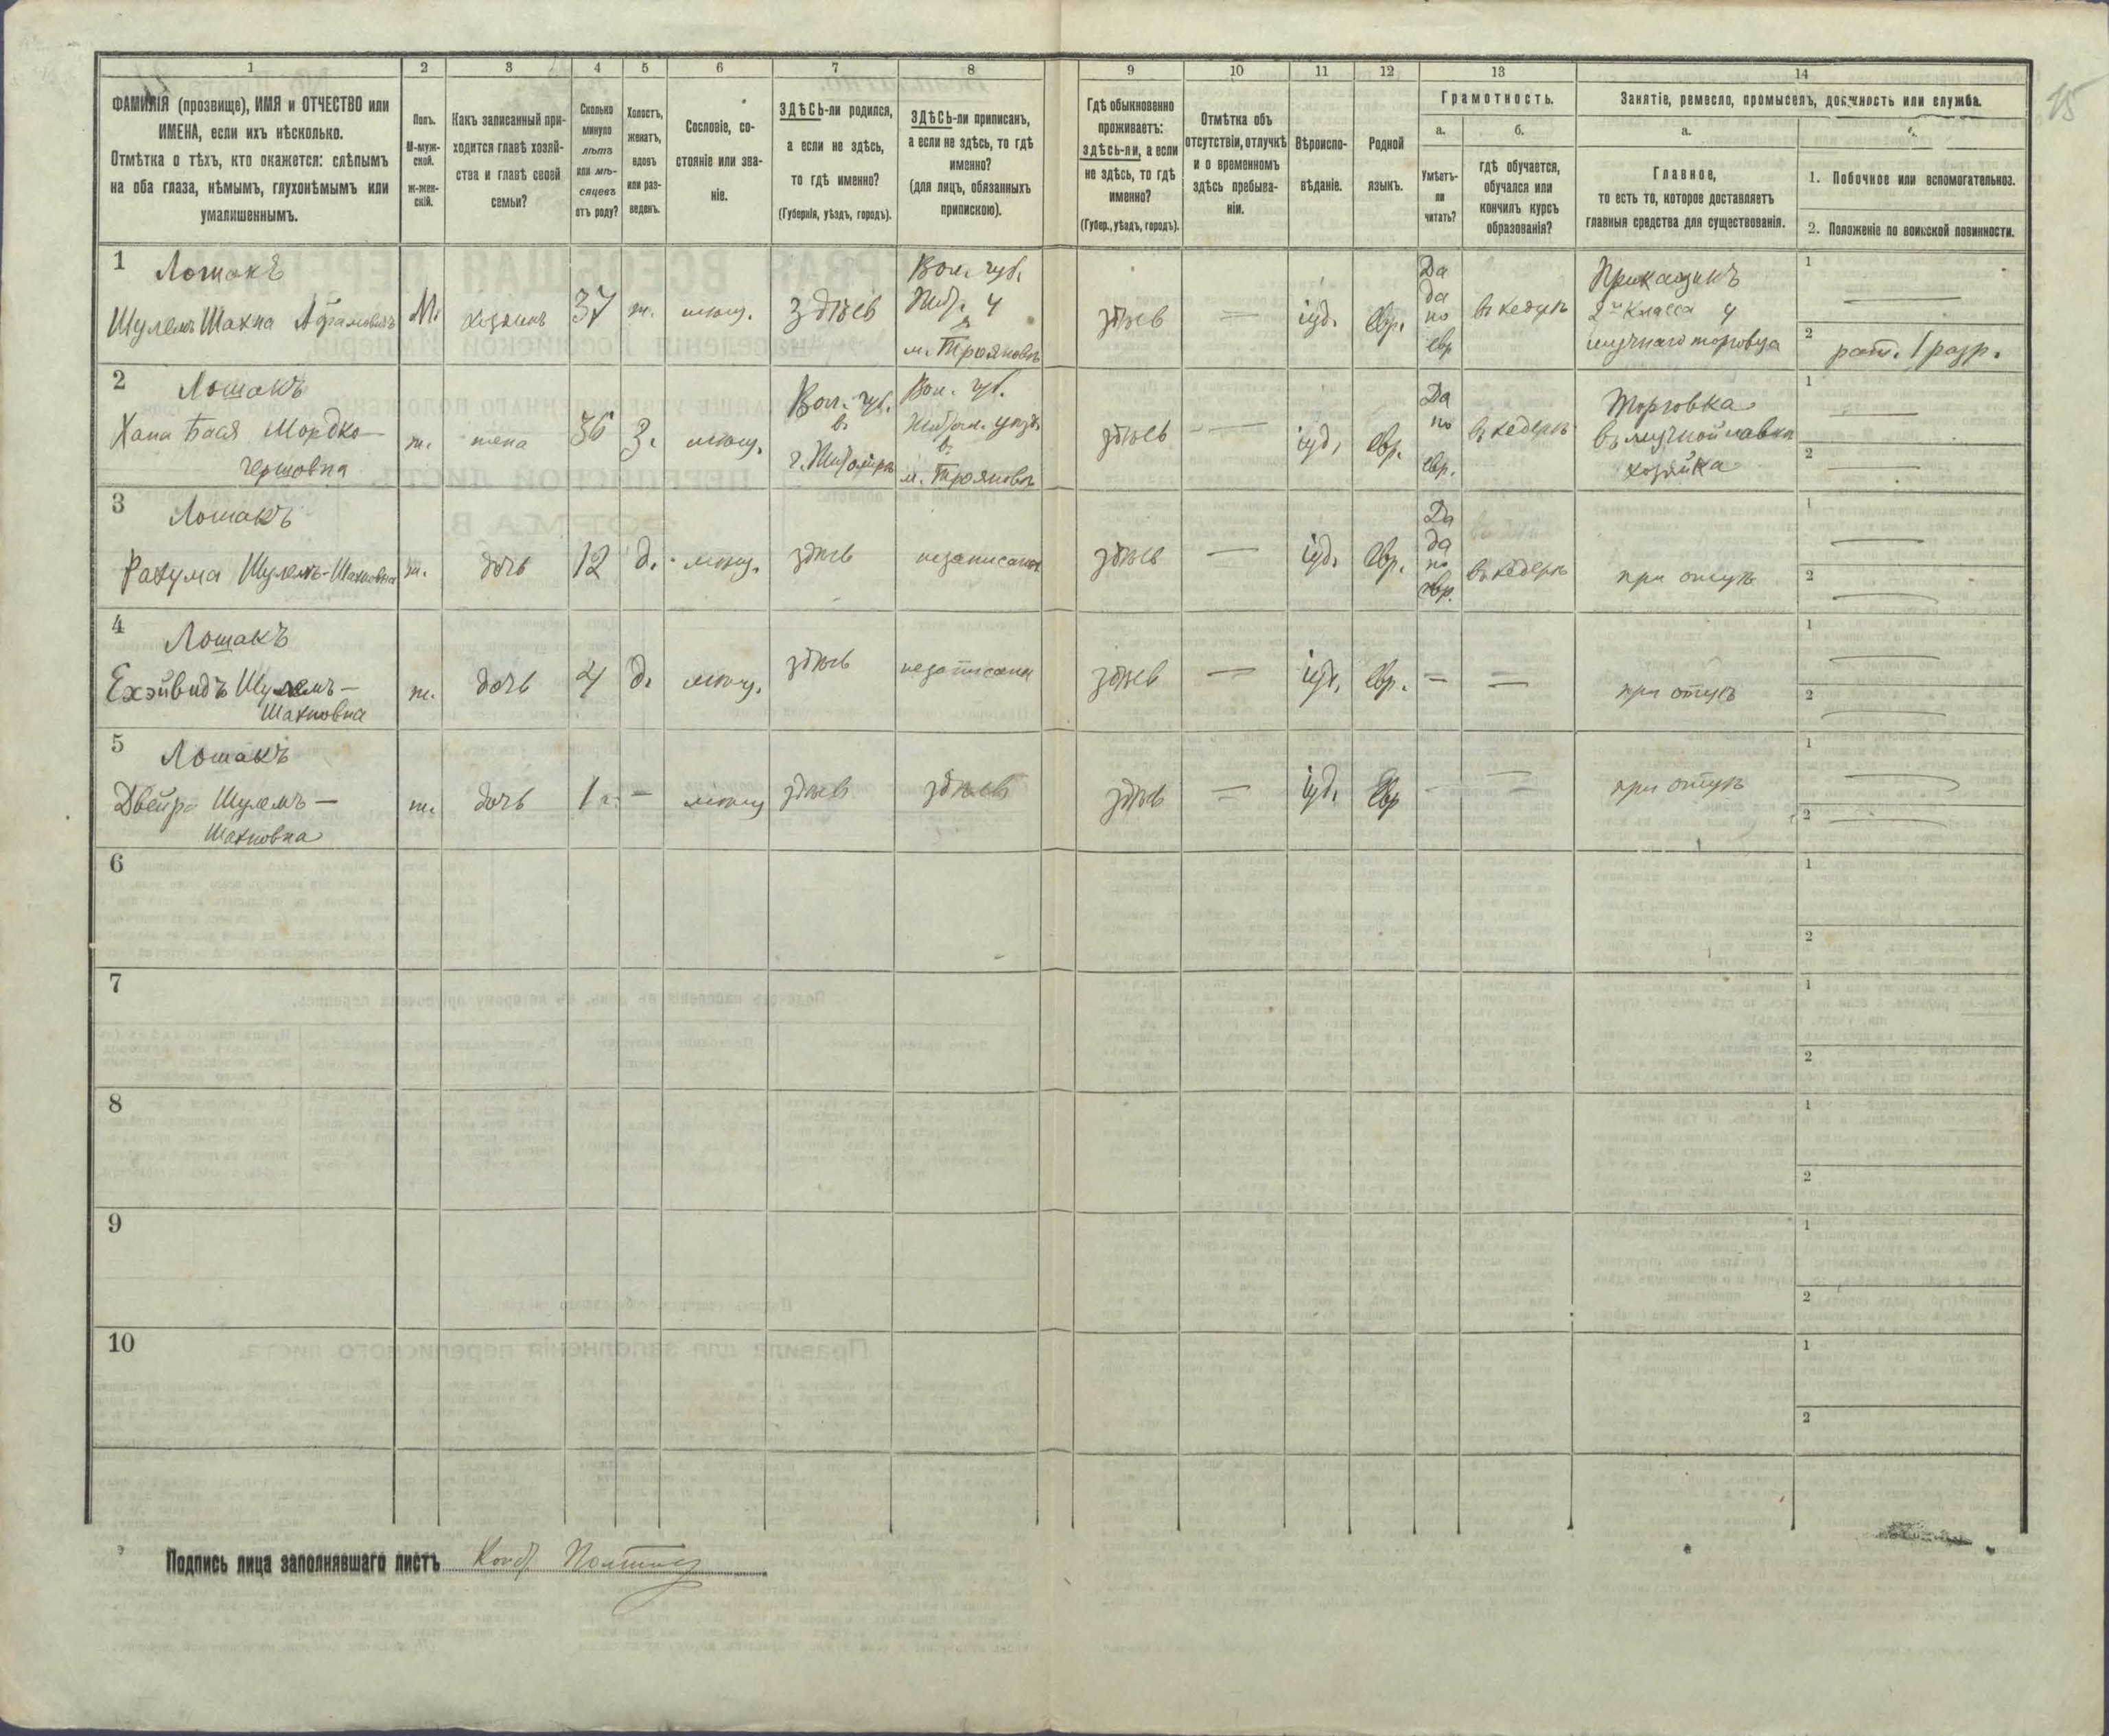 15
1 2 3 4 5 6 7 8 9 10 11 12 13 14
ФАМИЛІЯ (прозвище), ИМЯ и ОТЧЕСТВО или
ИМЕНА, если ихъ нѣсколько.
Отмѣтка о тѣхъ, кто окажется: слѣпымъ
на оба глаза, нѣмымъ, глухонѣмымъ или
умалишеннымъ.
Полъ.
М-муж-
ской.
Ж-жен-
скій.
Какъ записанный при-
ходится главѣ хозяй-
ства и главѣ своей
семьи?
Сколько
минуло
лѣтъ
или мѣ-
сяцевъ
отъ роду?
Холостъ,
женатъ,
вдовъ
или раз-
веденъ.
Сословіе, со-
стояніе или зва-
ніе.
ЗДѢСЬ-ли родился,
а если не здѣсь,
то гдѣ именно?
(Губернія, уѣздъ, городъ).
ЗДѢСЬ-ли приписанъ,
а если не здѣсь, то гдѣ
именно?
(для лицъ, обязанныхъ
припискою).
Гдѣ обыкновенно
проживаетъ:
здѣсь-ли, а если
не здѣсь, то гдѣ
именно?
(Губер., уѣздъ, городъ).
Отмѣтка объ
отсутствіи, отлучкѣ
и о временномъ
здѣсь пребыва-
ніи.
Вѣроиспо-
вѣданіе.
Родной
языкъ.
Грамотность.
а.
Умѣетъ-
ли
читать?
б.
гдѣ обучается,
обучался или
кончилъ курсъ
образованія?
Занятіе, ремесло, промыселъ, должность или служба.
а.
Главное,
то есть то, которое доставляетъ
главныя средства для существованія.
1. Побочное или вспомогательное.
2. Положеніе по воинской повинности.
1 Лошакъ
Шулемъ Шахна Абрамовичъ
М.
хозяинъ
37
ж.
мѣщ.
здѣсь
Вол. губ.
Жит. у
в
м. Трояновъ
здѣсь
—
іуд.
евр.
Да
да
по
евр
въ хедерѣ
Приказчикъ
2го класса у
мучнаго торговца
1 —
2 рат. 1 разр.
2 Лошакъ
Хана Бася Мордко-
Гершовна
ж.
жена
36
З.
мѣщ.
Вол. губ.
в.
г. Житомірѣ
Вол. губ.
Житом. уѣзд.
в.
м. Трояновъ
здѣсь
—
іуд.
евр.
Да
по
евр.
въ хедерѣ
Торговка
въ мучной лавкѣ
хозяйка
1 —
2 —
3 Лошакъ
Рахума Шулемъ-Шахновна
ж.
дочь
12
д.
мѣщ.
здѣсь
незаписана
здѣсь
—
іуд.
евр.
Да
да
по
евр.
въ хедерѣ
при отцѣ
1 —
2 —
4 Лошакъ
Ехэйвидъ Шулемъ-
Шахновна
ж.
дочь
4
д.
мѣщ.
здѣсь
незаписана
здѣсь
—
іуд.
евр.
—
—
при отцѣ
1 —
2 —
5 Лошакъ
Двейра Шулемъ-
Шахновна
ж.
дочь
1 г.
—
мѣщ
здѣсь
здѣсь
здѣсь
—
іуд.
Евр
-
—
при отцѣ
1 —
2 —
6
1
2
7
1
2
8
1
2
9
1
2
10
1
2
Подпись лица заполнявшаго листъ